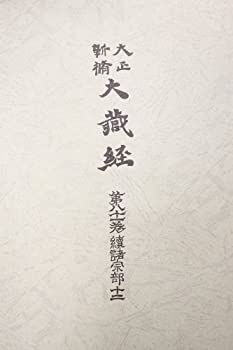 大正
新脩
大藏經
第八十一卷續諸宗部十二